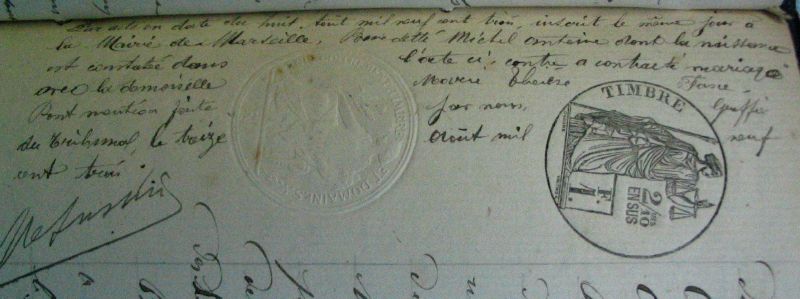 Par acte en date du huit août mil neuf cent trois, inscrit le même jour à
la Mairie de Marseille, Michel Antoine dont la naissance
est constatée dans l'acte ci-contre a contracté mariage
avec la demoiselle Marie Thérèse
Dont mention faite par nous, Greffier
du Tribunal, le treize août mil neuf
cent trois.
TIMBRE
F.
1.
2/10
EN SUS